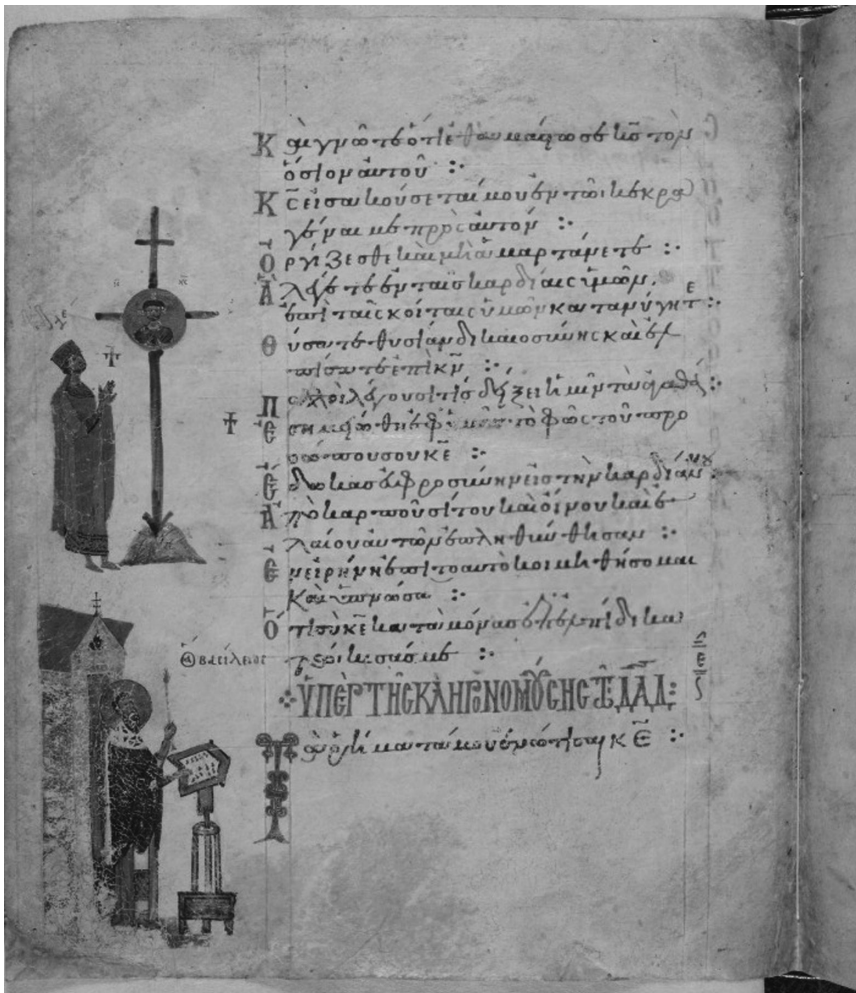 Καὶ γνῶτε ὅτι ἐθαυμάστωσε κ̅ς̅ τὸν
ὅσιον αὐτοῦ :·
Κ̅ς̅ εἰσακούσεταί μου ἐν τῶι κεκρα
γέναι με πρὸς αὐτόν :·
Ὀργίζεσθε καὶ μὴ ἁμαρτάνετε :·
Ἃ λέγετε ἐν ταῖς καρδίαις ὑμῶν,
ἐπὶ ταῖς κοίταις ὑμῶν κατανύγητε :·
Θύσατε θυσίαν δικαιοσύνης καὶ ἐλ
πίσατε ἐπὶ κ̅ν̅ :·
Πολλοὶ λέγουσι τίς δείξει ἡμῖν τὰ ἀγαθά :·
Ἐσημειώθη ἐφ' ἡμᾶς τὸ φῶς τοῦ προ
σώπου σου κ̅ε̅ :·
Ἔδωκας εὐφροσύνην εἰς τὴν καρδίαν μου :·
Ἀπὸ καρποῦ σίτου καὶ οἴνου καὶ ἐ
λαίου αὐτῶν ἐπληθύνθησαν :·
Ἐν εἰρήνη ἐπιτοαυτὸ κοιμηθήσομαι
καὶ ὑπνώσω :·
Ὅτι σὺ κ̅ε̅ κατὰ μόνας ἐπ' ἐλπίδι κα
τώικισάς με :·
Ὁ ΒΑϹΙΛΕΙΟϹ
ὙΠΕΡ ΤΗϹ ΚΛΗΡΟΝΟΜΟΥϹΗϹ Δ̅Α̅Δ̅ :
Τὰ ῥήματά μου ἐνώτισαι κ̅ε̅ :·